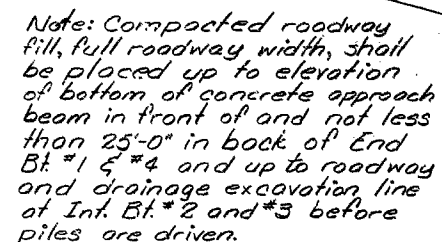 Note: Compacted roadway
fill, full roadway width, shall
be placed up to elevation
of bottom of concrete approach
beam in front of and not less
than 25'-0" in back of End
Bt. #1 & #4 and up to roadway
and drainage excavation line
at Int. Bt. #2 and #3 before
piles are driven.